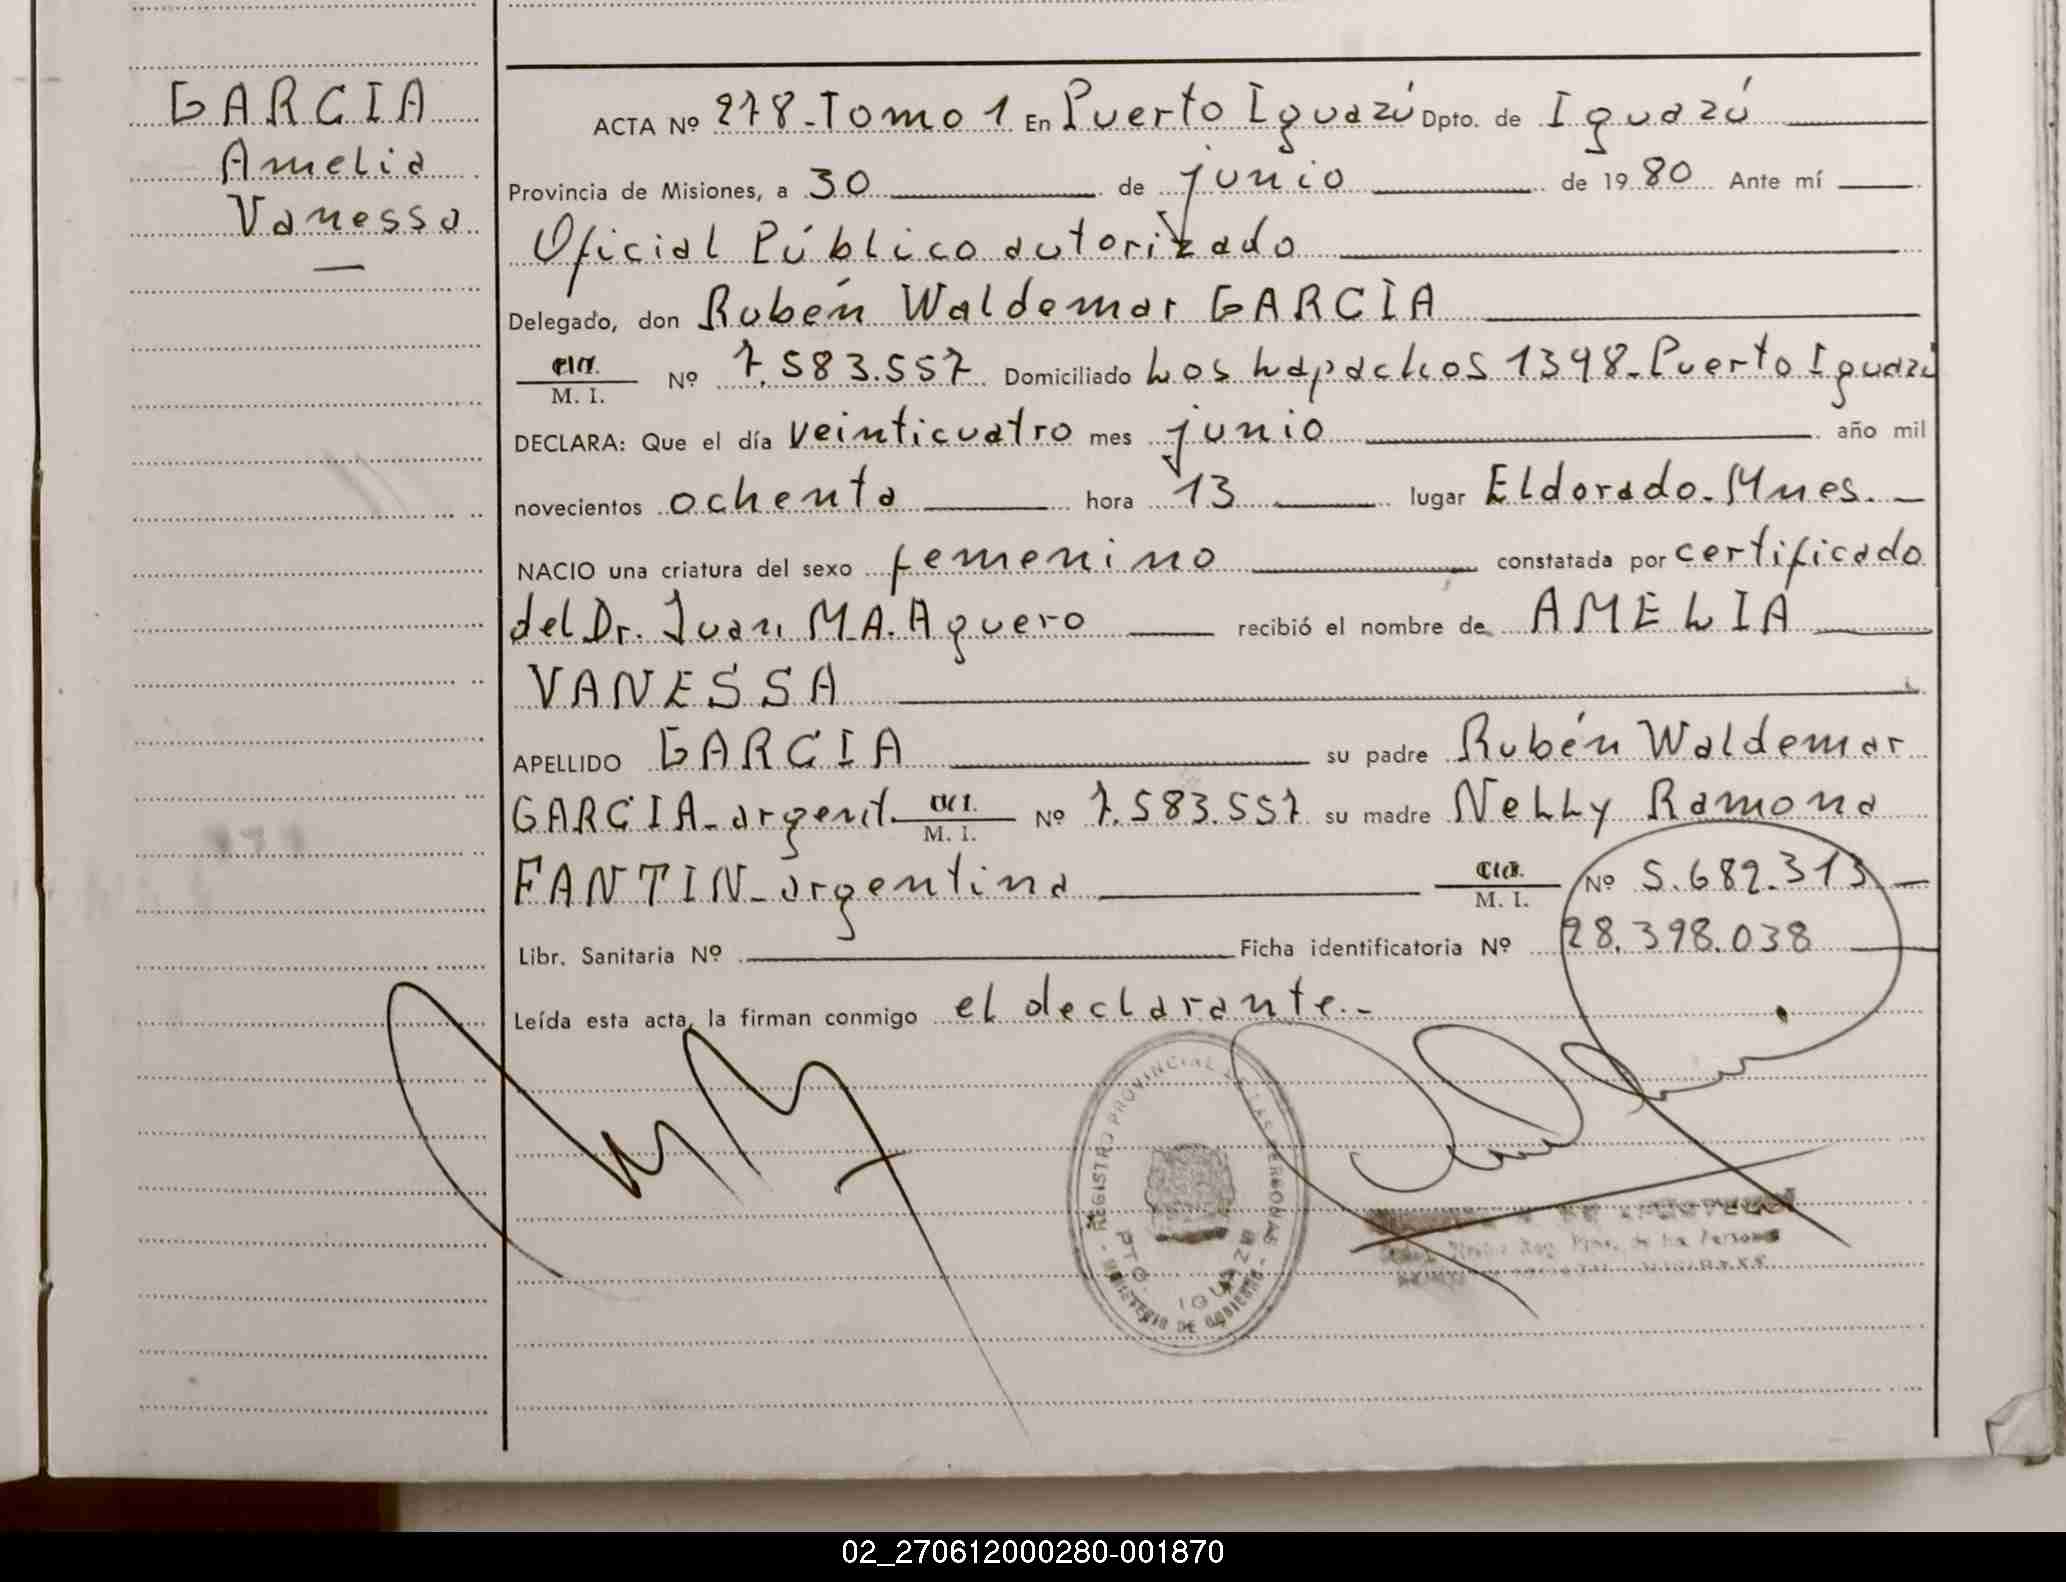 GARCIA
Amelia
Vanessa
ACTA Nº 278-Tomo 1 En Puerto Iguazú Dpto. de Iguazú
Provincia de Misiones, a 30 de junio de 1980 Ante mí
Oficial Público autorizado
Delegado, don Rubén Waldemar GARCIA
M. I. Nº 7.583.557 Domiciliado Los Lapachos 1398-Puerto Iguazú
DECLARA: Que el día veinticuatro mes junio año mil
novecientos ochenta hora 13 lugar Eldorado-Mnes.-
NACIO una criatura del sexo femenino constatada por certificado
del Dr. Juan M.A. Aguero recibió el nombre de AMELIA
VANESSA
APELLIDO GARCIA su padre Rubén Waldemar
GARCIA-argent. M. I. Nº 7.583.557 su madre NeLLy Ramona
FANTIN-argentina M. I. Nº 5.682.313
Libr. Sanitaria Nº Ficha identificatoria Nº 28.398.038
Leída esta acta, la firman conmigo el declarante.-
REGISTRO PROVINCIAL DE LAS PERSONAS
PTO. IGUAZU
MINISTERIO DE GOBIERNO
02_270612000280-001870